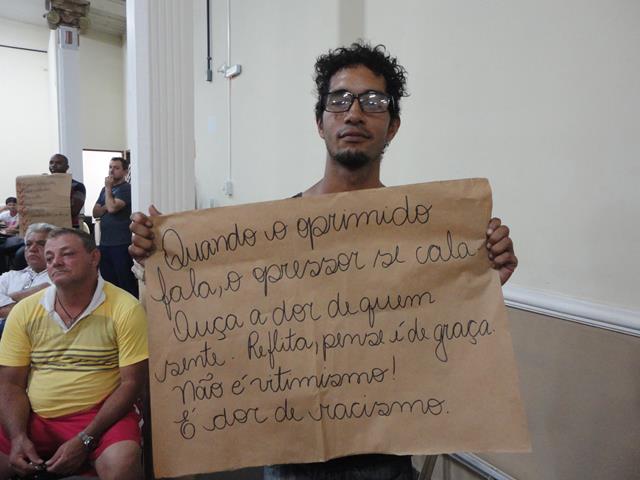 Quando o oprimido
fala, o opressor se cala
Ouça a dor de quem
sente. Reflita, pense é de graça.
Não é vitimismo!
É dor de racismo.